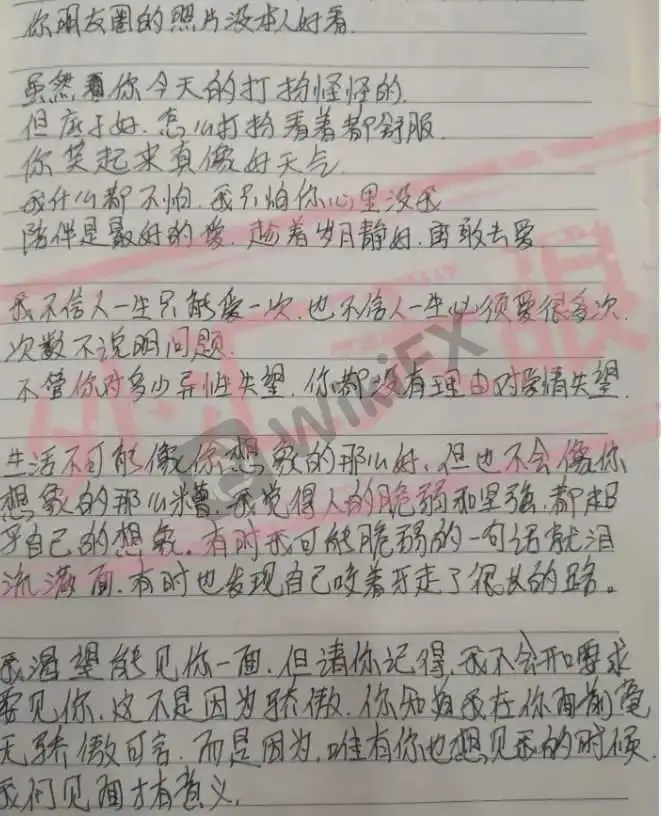 你朋友圈的照片没本人好看.
虽然看你今天的打扮怪怪的.
但底子好.怎么打扮看着都舒服.
你笑起来真像好天气.
我什么都不怕.我只怕你心里没我
陪伴是最好的爱.趁着岁月静好.勇敢去爱
我不信人一生只能爱一次.也不信人一生必须爱很多次.
次数不说明问题.
不管你对多少异性失望.你都没有理由对爱情失望.
WikiFX
生活不可能像你想象的那么好.但也不会像你
想象的那么糟.我觉得人的脆弱和坚强.都超
乎自己的想象.有时我可能脆弱的一句话就泪
流满面.有时也发现自己咬着牙走了很长的路。
我渴望能见你一面.但请你记得.我不会开口要求
要见你.这不是因为骄傲.你知道我在你面前毫
无骄傲可言.而是因为.唯有你也想见我的时候.
我们见面才有意义.